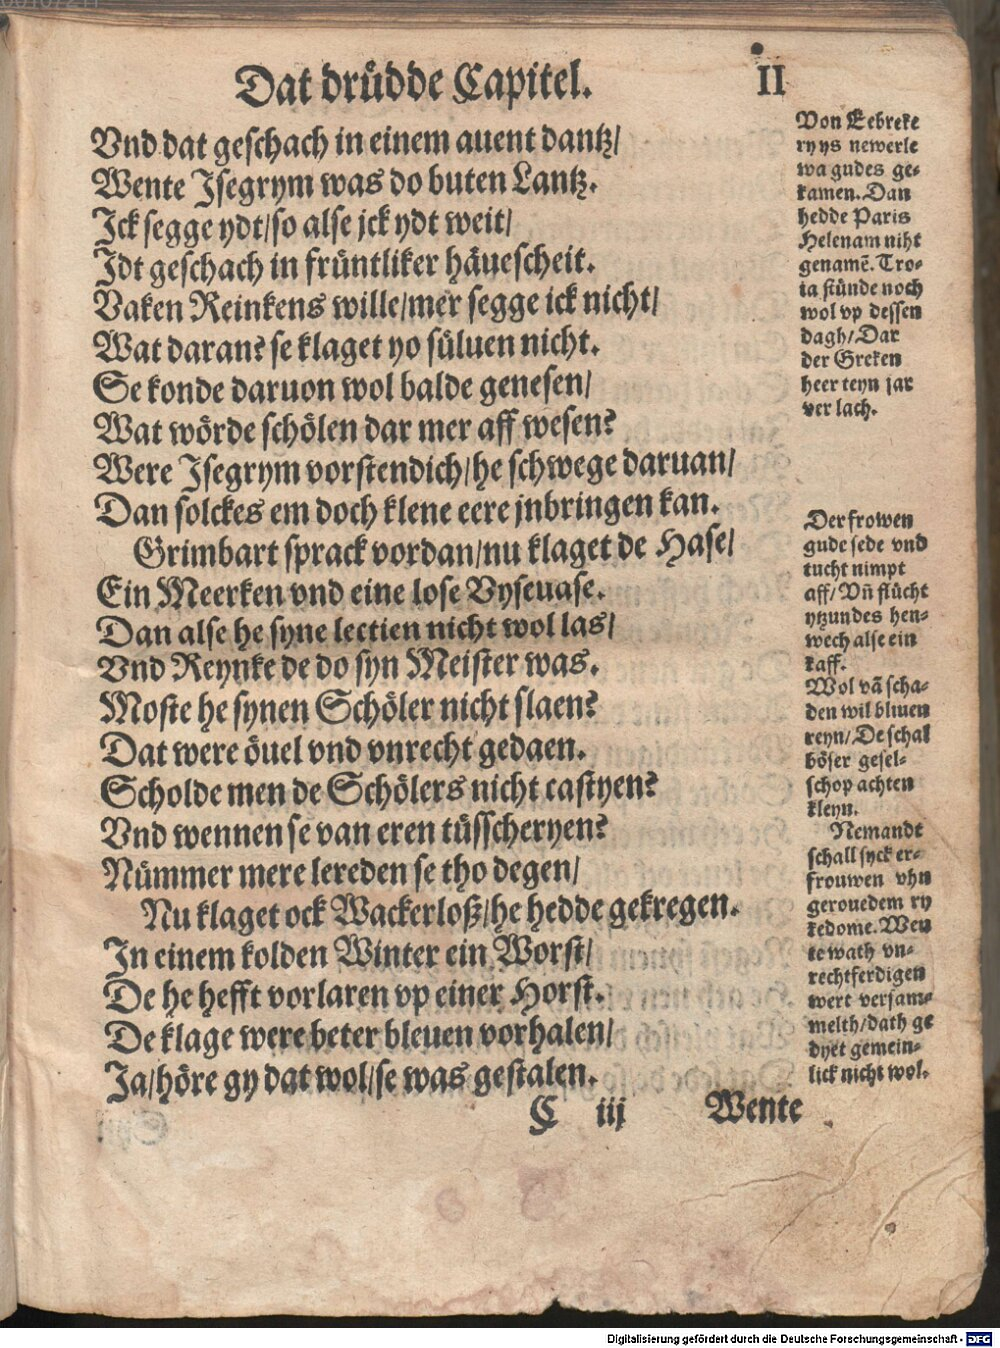 Dat drüdde Capitel.
II
Vnd dat geschach in einem auent dantz/
Wente Jsegrym was do buten Lantz.
Jck segge ydt/so alse jck ydt weit/
Jdt geschach in früntliker häuescheit.
Vaken Reinkens wille/mer segge ick nicht/
Wat daran? se klaget yo süluen nicht.
Se konde daruon wol balde genesen/
Wat wörde schölen dar mer aff wesen?
Were Jsegrym vorstendich/he schwege daruan/
Dan solckes em doch klene eere jnbringen kan.
Grimbart sprack vordan/nu klaget de Hase/
Ein Meerken vnd eine lose Vyseuase.
Dan alse he syne lectien nicht wol las/
Vnd Reynke de do syn Meister was.
Moste he synen Schöler nicht slaen?
Dat were öuel vnd vnrecht gedaen.
Scholde men de Schölers nicht castyen?
Vnd wennen se van eren tüsscheryen?
Nümmer mere lereden se tho degen/
Nu klaget ock Wackerloß/he hedde gekregen.
Jn einem kolden Winter ein Worst/
De he hefft vorlaren vp einer Horst.
De klage were beter bleuen vorhalen/
Ja/höre gy dat wol/se was gestalen.
C iij
Wente
Von Eebreke
ry ys newerle
wa gudes ge-
kamen. Dan
hedde Paris
Helenam niht
genamē. Tro-
ia stünde noch
wol vp dessen
dagh/Dar
der Greken
heer teyn jar
ver lach.
Der frowen
gude sede vnd
tucht nimpt
aff/Vñ flücht
ytzundes hen-
wech alse ein
kaff.
Wol vā scha-
den wil bliuen
reyn/De schal
böser gesel-
schop achten
kleyn.
Nemandt
schall syck er-
frouwen vhn
gerouedem ry
kedome. Wen
te wath vn-
rechtferdigen
wert versam-
melth/dath ge
dyet gemein-
lick nicht wol.
Digitalisierung gefördert durch die Deutsche Forschungsgemeinschaft - DFG